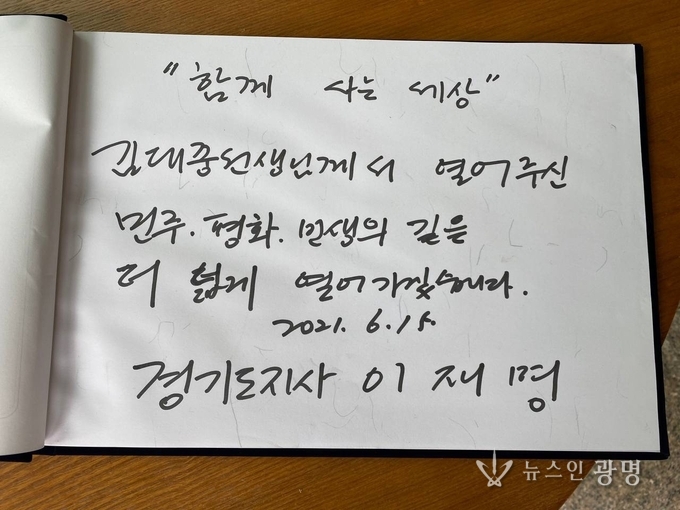 "함께 사는 세상"
김대중선생님께서 열어주신
민주. 평화. 민생의 길을
더 넓게 열어가겠습니다.
2021. 6. 15.
경기도지사 이재명
뉴스인광명